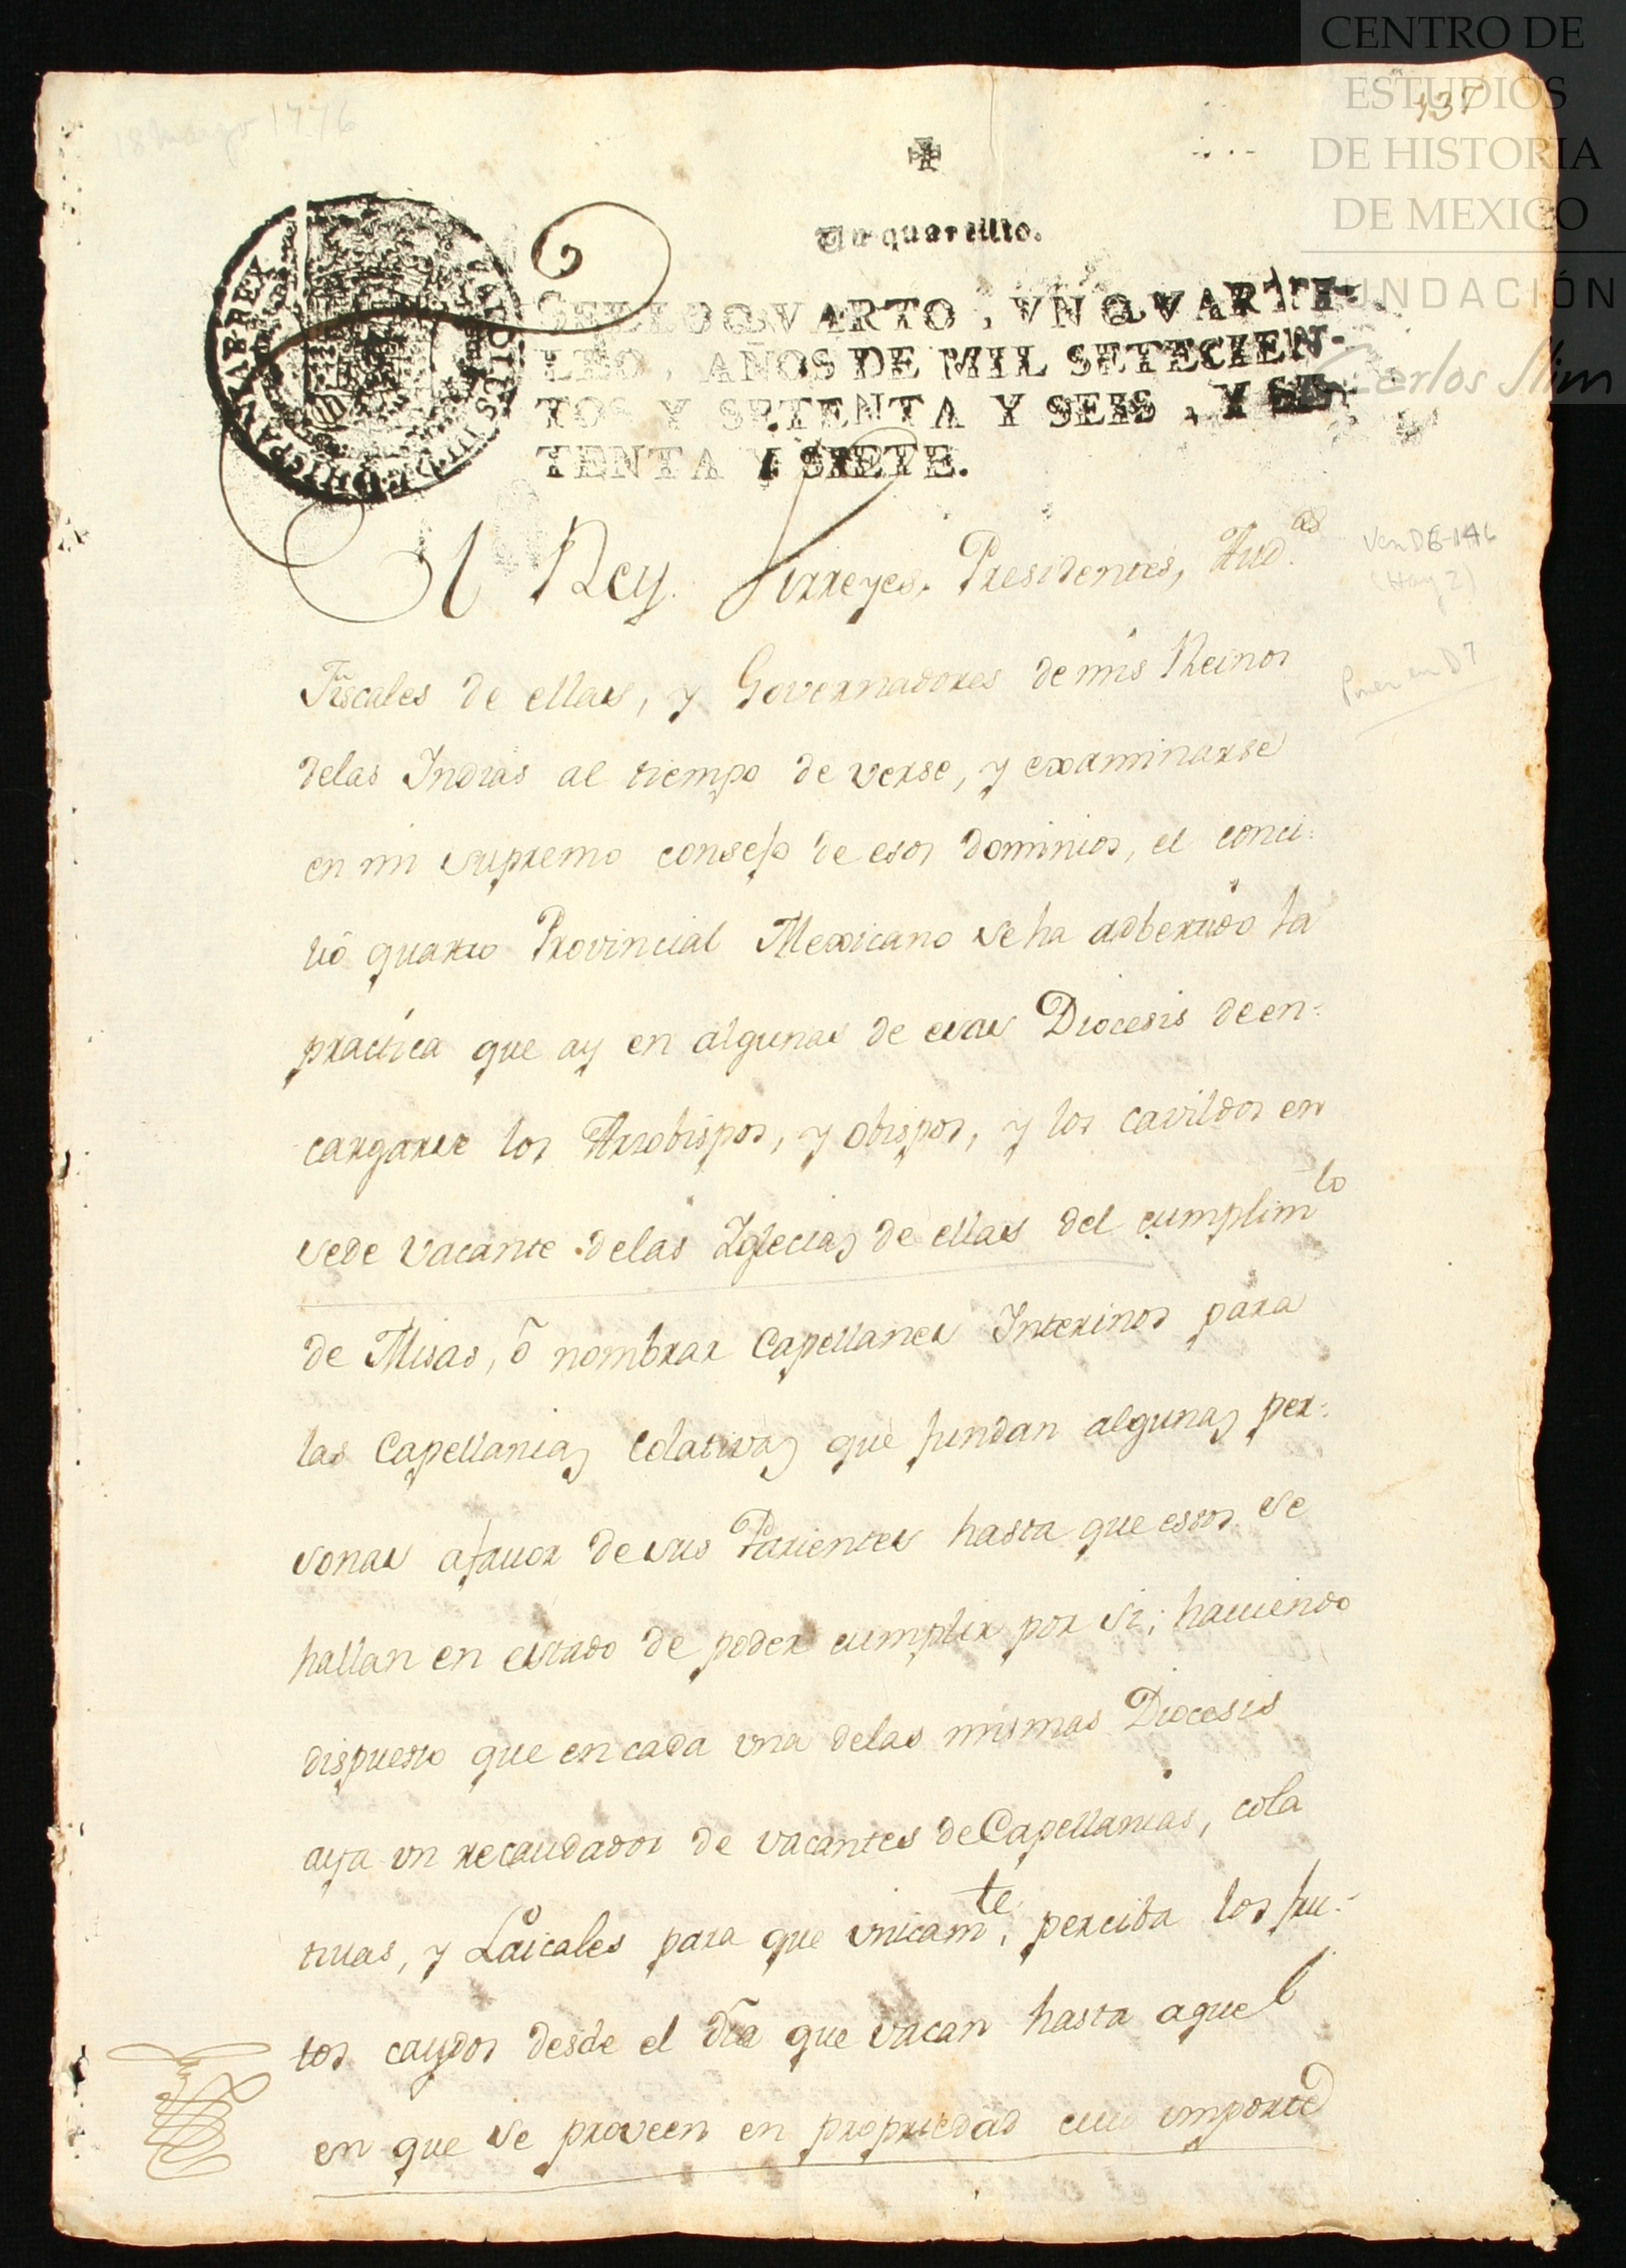 CENTRO DE
ESTUDIOS
DE HISTORIA
DE MEXICO
FUNDACIÓN
Carlos Slim
137
18 Marzo 1776
Un quartillo.
SELLO QVARTO, VN QVARTI-
LLO, AÑOS DE MIL SETECIEN-
TOS Y SETENTA Y SEIS, Y SE-
TENTA Y SIETE.
El Rey. Virreyes, Presidentes, Aud.as
Fiscales de ellas, y Governadores de mis Reinos
delas Indias al tiempo de verse, y examinarse
en mi supremo consejo de esos dominios, el conci-
lio quarto Provincial Mexicano se ha adbertido la
practica que ay en algunas de esas Diocesis de en-
cargarse los Arzobispos, y obispos, y los cavildos en
sede vacante delas Iglecias de ellas del cumplim.to
de Misas, ô nombrar Capellanes Interinos para
las Capellanias Colativas que fundan algunas per-
sonas a favor de sus Parientes hasta que estos se
hallan en estado de poder cumplir por si; haciendo
dispuesto que en cada una delas mismas Diocesis
aya un recaudador de vacantes de Capellanias, cola
tivas, y Laicales para que unicam.te perciba los fru-
tos caydos desde el dia que vacan hasta aquel
en que se proveen en propriedad cuio importe